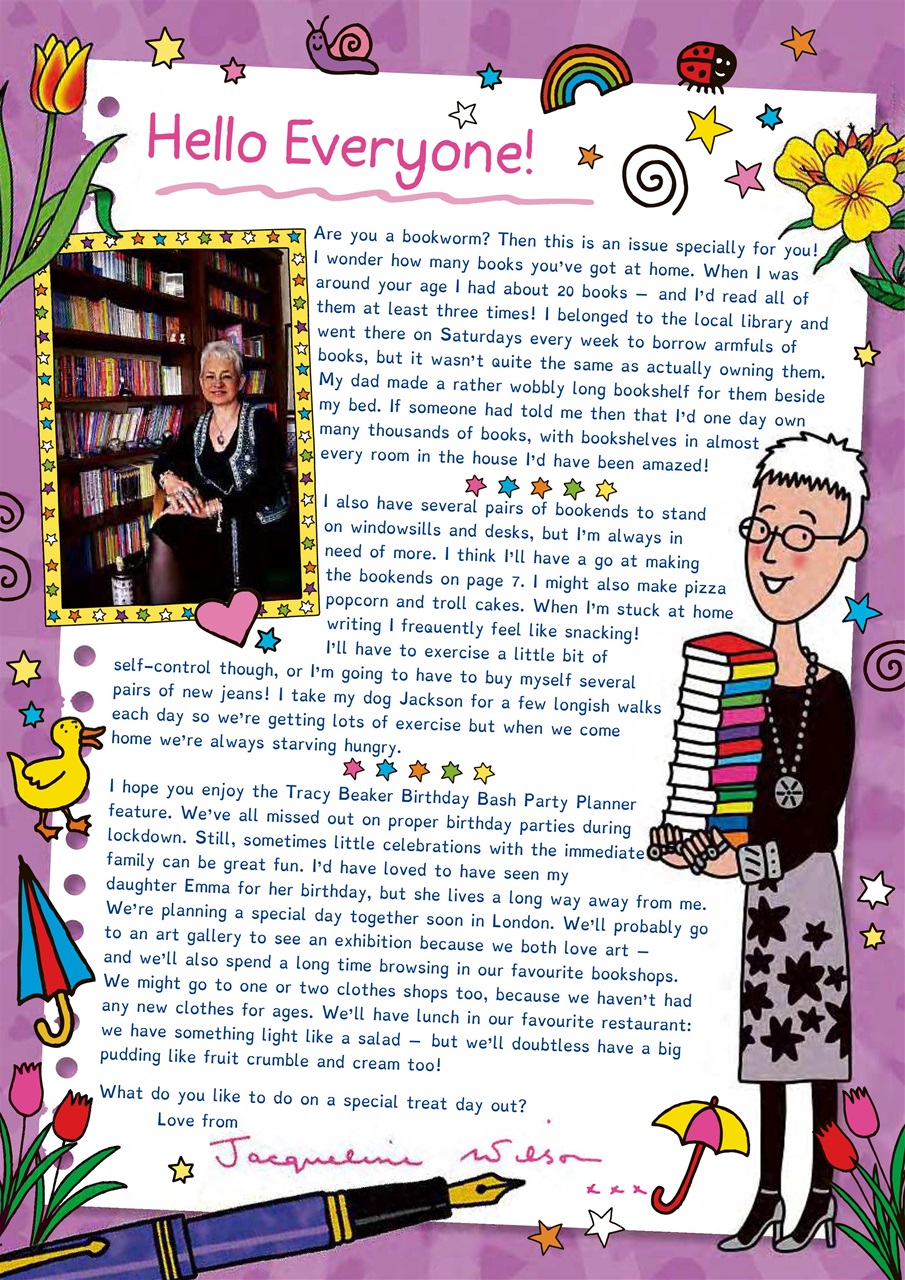 Hello Everyone!
Are you a bookworm? Then this is an issue specially for you!
I wonder how many books you've got at home. When I was
around your age I had about 20 books – and I'd read all of
them at least three times! I belonged to the local library and
went there on Saturdays every week to borrow armfuls of
books, but it wasn't quite the same as actually owning them.
My dad made a rather wobbly long bookshelf for them beside
my bed. If someone had told me then that I'd one day own
many thousands of books, with bookshelves in almost
every room in the house I'd have been amazed!
I also have several pairs of bookends to stand
on windowsills and desks, but I'm always in
need of more. I think I'll have a go at making
the bookends on page 7. I might also make pizza
popcorn and troll cakes. When I'm stuck at home
writing I frequently feel like snacking!
I'll have to exercise a little bit of
self-control though, or I'm going to have to buy myself several
pairs of new jeans! I take my dog Jackson for a few longish walks
each day so we're getting lots of exercise but when we come
home we're always starving hungry.
I hope you enjoy the Tracy Beaker Birthday Bash Party Planner
feature. We've all missed out on proper birthday parties during
lockdown. Still, sometimes little celebrations with the immediate
family can be great fun. I'd have loved to have seen my
daughter Emma for her birthday, but she lives a long way away from me.
We're planning a special day together soon in London. We'll probably go
to an art gallery to see an exhibition because we both love art –
and we'll also spend a long time browsing in our favourite bookshops.
We might go to one or two clothes shops too, because we haven't had
any new clothes for ages. We'll have lunch in our favourite restaurant:
we have something light like a salad – but we'll doubtless have a big
pudding like fruit crumble and cream too!
What do you like to do on a special treat day out?
Love from
Jacqueline Wilson
x x x